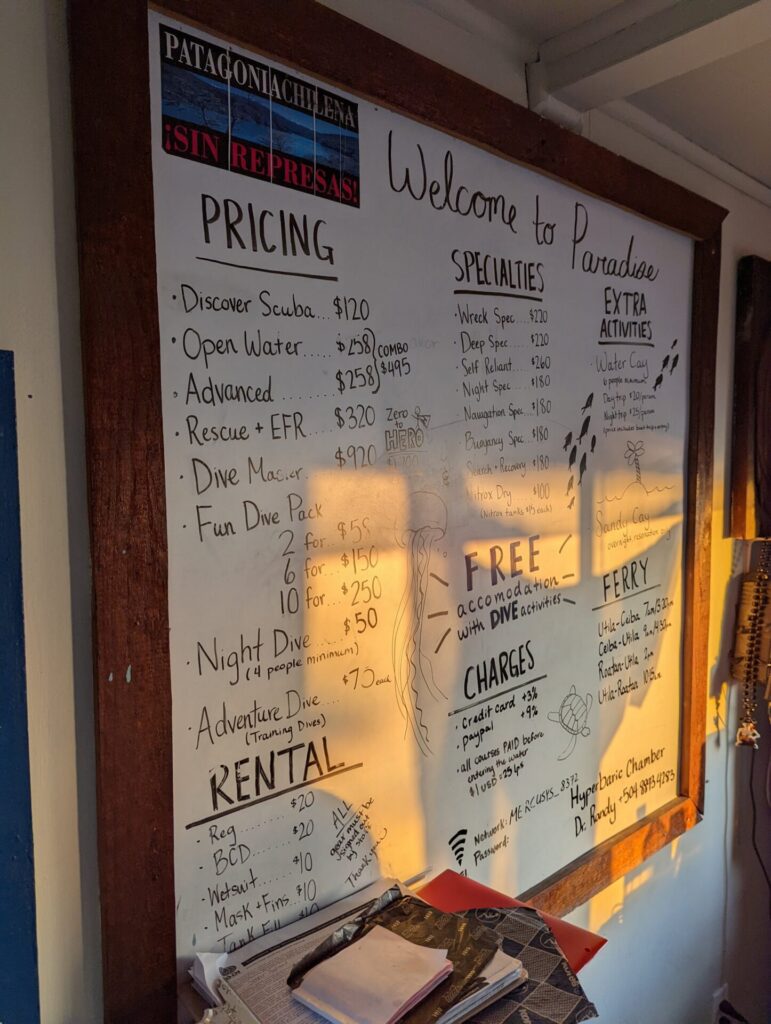 PATAGONIACHILENA
¡SIN REPRESAS!
Welcome to Paradise
PRICING
· Discover Scuba... $120
· Open Water..... $258
· Advanced ..... $258
COMBO
$495
· Rescue + EFR.... $320
· Dive Master... $920
Zero
to
HERO
· Fun Dive Pack
2 for... $55
6 for... $150
10 for... $250
· Night Dive..... $50
(4 people minimum)
· Adventure Dive.... $75 each
(Training Dives)
RENTAL
· Reg ....... $20
· BCD....... $20
· Wetsuit.... $10
· Mask + Fins... $10
ALL
gear must be
signed out
by staff
Thank you
SPECIALTIES
· Wreck Spec.... $220
· Deep Spec.... $220
· Self Reliant.... $260
· Night Spec.... $180
· Navagation Spec... $180
· Buoyancy Spec... $180
· Search + Recovery... $180
· Nitrox Dry.... $100
(Nitrox tanks $15 each)
FREE
accomodation
with DIVE activities
CHARGES
· credit card +3%
· paypal +9%
· all courses PAID before
entering the water
$1 USD = 25 Lps
Network: MERCUSYS_8372
Password:
EXTRA
ACTIVITIES
· Water Cay
6 people minimum
Day trip $20/person
Night trip $25/person
· Sandy Cay
overnight reservation only
FERRY
Utila-Ceiba
Ceiba-Utila
Roatan-Utila 2pm
Utila-Roatan
Hyperbaric Chamber
Dr. Randy +504 8893 4283